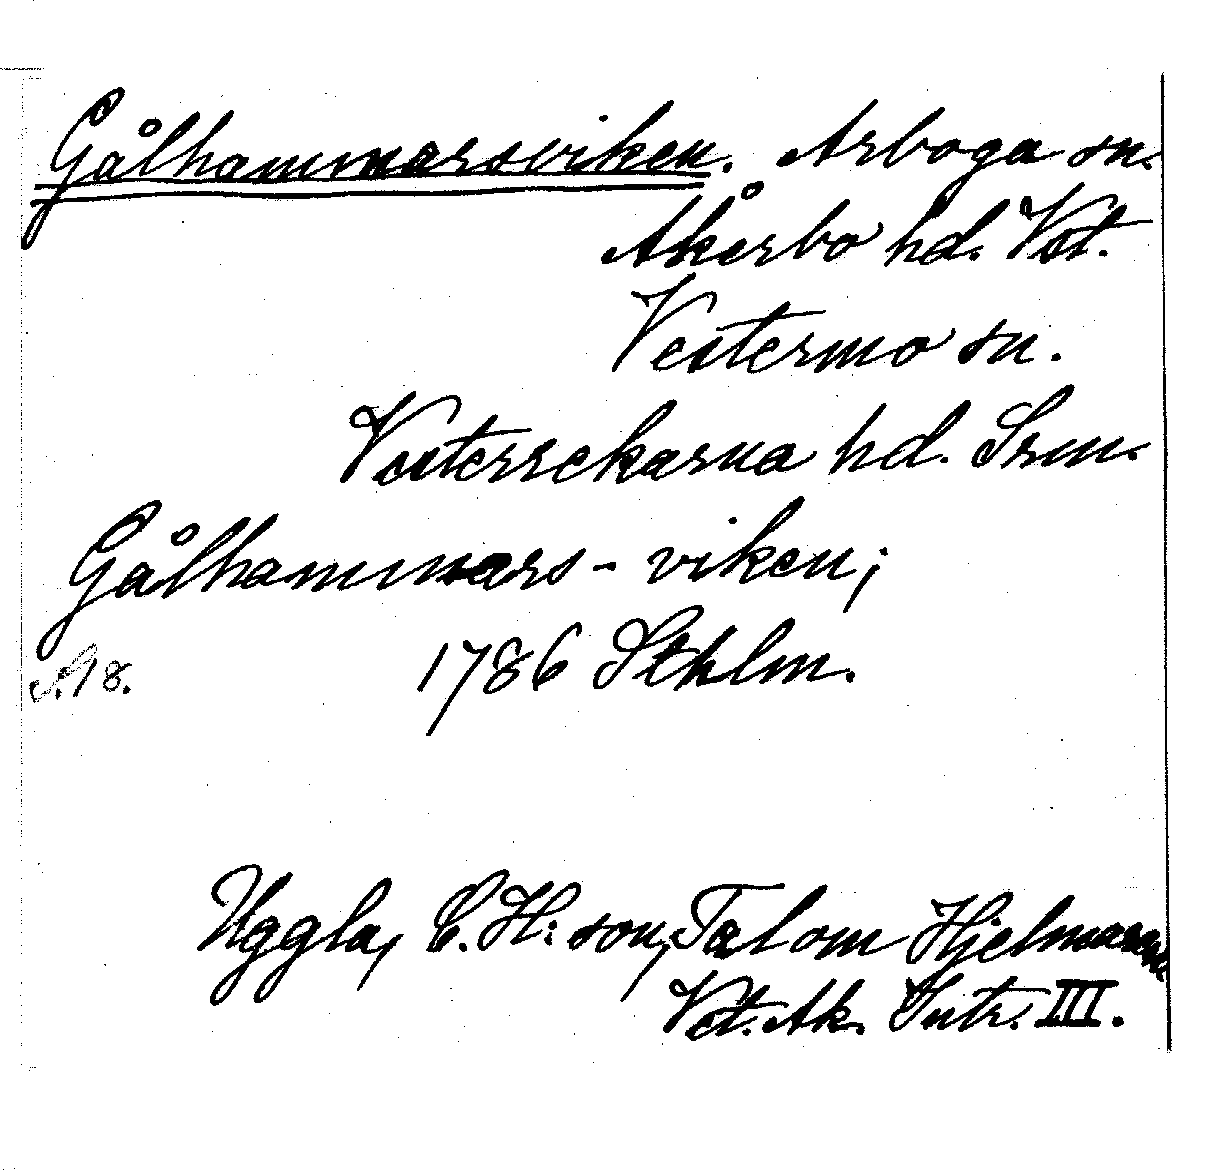 Gålhammarsviken. Arboga sn.
Åkerbo hd. Vst.
Vestermo sn.
Vesterrekarna hd. Srm.
Gålhammars-viken;
1786 Sthlm.
S. 18.
Uggla, C. H:son, Tal om Hjelmaren
Vet. Ak. Intr. III.